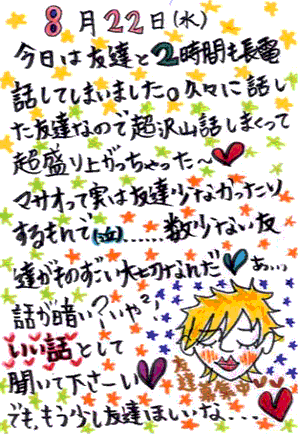 8月22日(水)
今日は友達と2時間も長電
話してしまいました。久々に話し
た友達なので超沢山話しまくって
超盛り上がっちゃった〜
マサオって実は友達少なかったり
するもんで(泣)……数少ない友
達がものすごい大切なんだ あ…。
話が暗い?いやいや
いい話として
聞いて下さーい
友達募集中
でも、もう少し友達ほしいな...